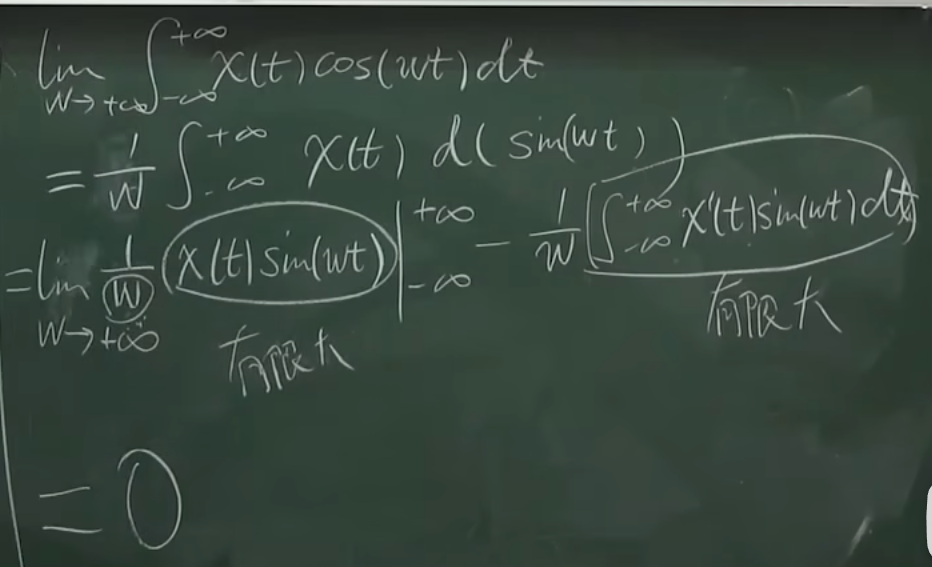 lim ∫ +∞ -∞ x(t) cos(wt) dt
w→+∞
= 1/w ∫ +∞ -∞ x(t) d(sin(wt))
= lim 1/w (x(t) sin(wt)) | +∞ -∞ - 1/w [∫ +∞ -∞ x'(t) sin(wt) dt]
w→+∞ 有限大 有限大
= 0